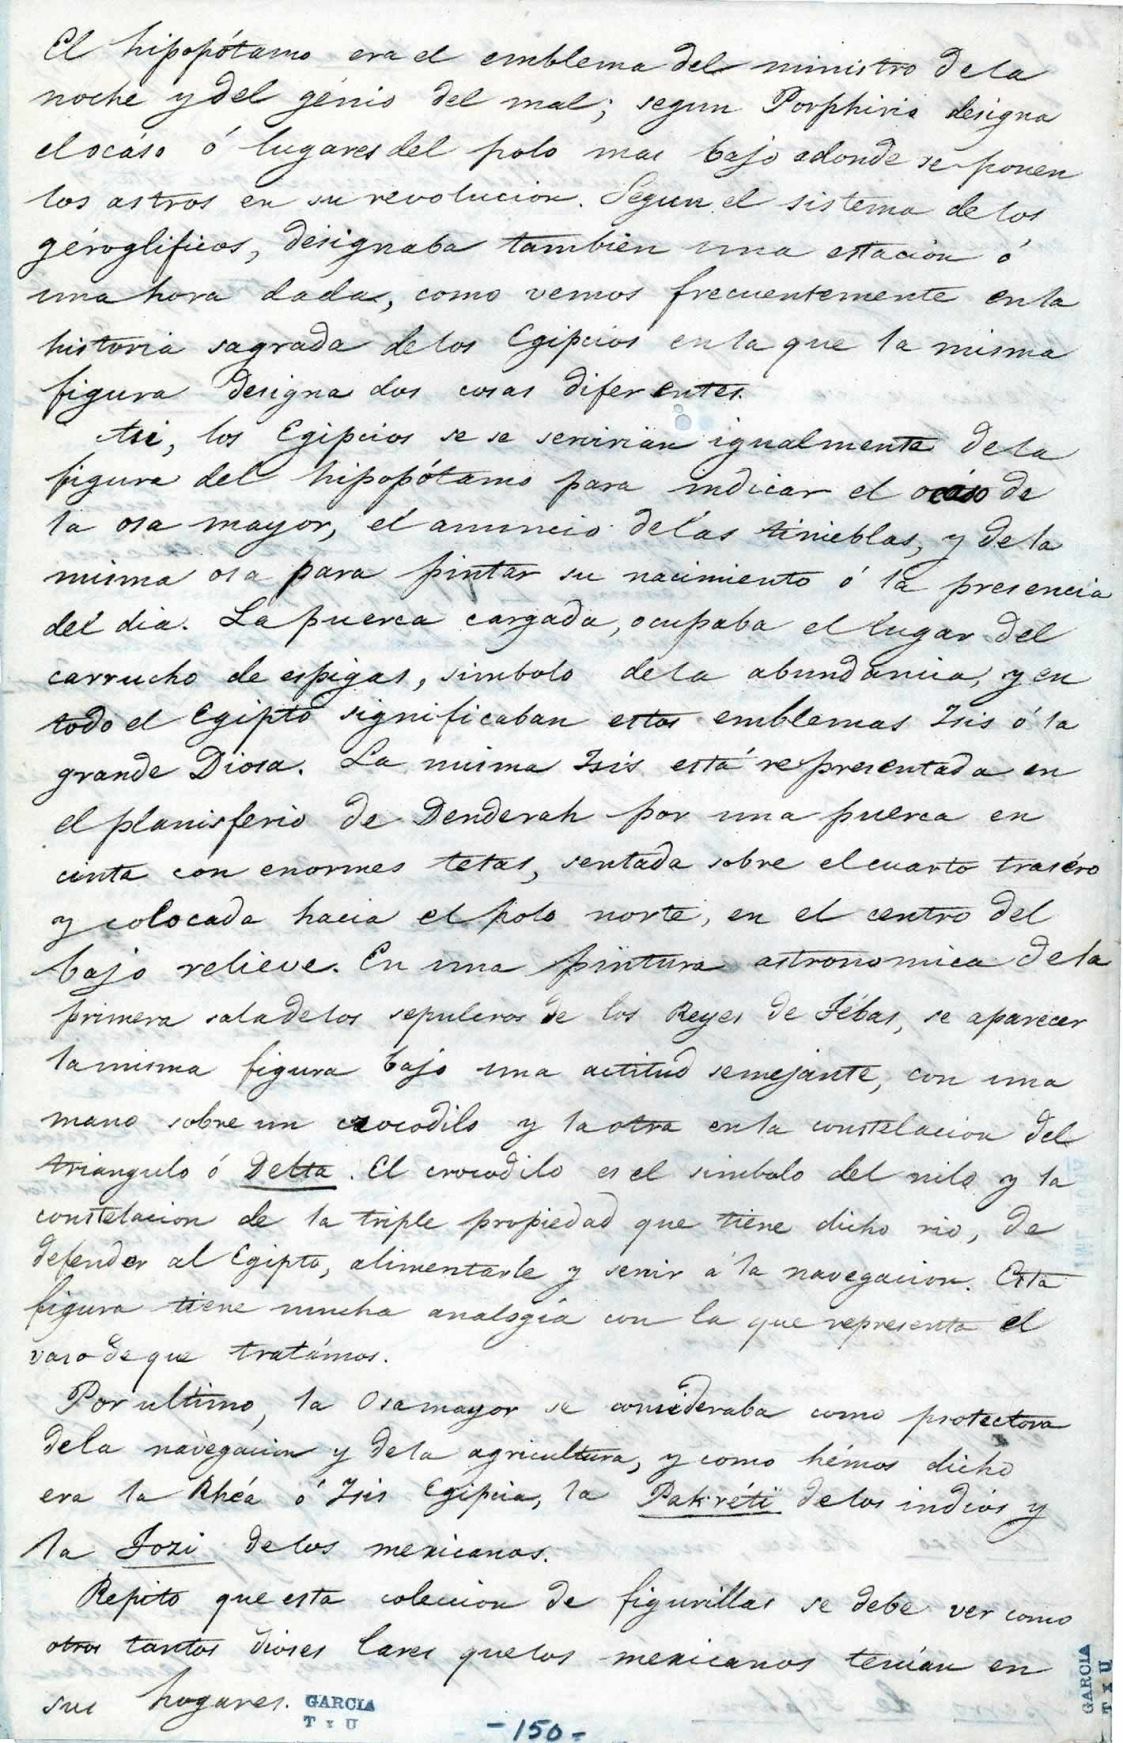 El hipopótamo era el emblema del ministro de la
noche y del génio del mal; segun Porphirio designa
el ocáso ó lugares del polo mas bajo adonde se ponen
los astros en su revolucion. Segun el sistema de los
géroglificos, designaba tambien una estación ó
una hora dada, como vemos frecuentemente en la
historia sagrada de los Egipcios en la que la misma
figura designa dos cosas diferentes.
Asi, los Egipcios se se servirian igualmente de la
figura del hipopótamo para indicar el ocáso de
la osa mayor, el anuncio de las tinieblas, y de la
misma osa para pintar su nacimiento ó la presencia
del dia. La puerca cargada, ocupaba el lugar del
carrucho de espigas, simbolo de la abundancia, y en
todo el Egipto significaban estos emblemas Isis ó la
grande Diosa. La misma Isis está representada en
el planisferio de Denderah por una puerca en
cinta con enormes tetas, sentada sobre el cuarto traséro
y colocada hacia el polo norte, en el centro del
bajo relieve. En una pintura astronomica de la
primera sala de los sepulcros de los Reyes de Tébas, se aparecer
la misma figura bajo una actitud semejante, con una
mano sobre un crocodilo y la otra en la constelacion del
triangulo ó Delta. El crocodilo es el simbolo del nilo y la
constelacion de la triple propiedad que tiene dicho rio, de
defender al Egipto, alimentarle y servir á la navegacion. Esta
figura tiene mucha analogía con la que representa el
vaso de que tratámos.
Por ultimo, la Osa mayor se consideraba como protectora
de la navegacion y de la agricultura, y como hémos dicho
era la Rhéa ó Isis Egipcia, la Pakréti de los indios y
la Tozi de los mexicanos.
Repito que esta coleccion de figurillas se debe ver como
otros tantos dioses lares que los mexicanos tenian en
sus hogares.
GARCIA
T x U
-150-
GARCIA
T x U